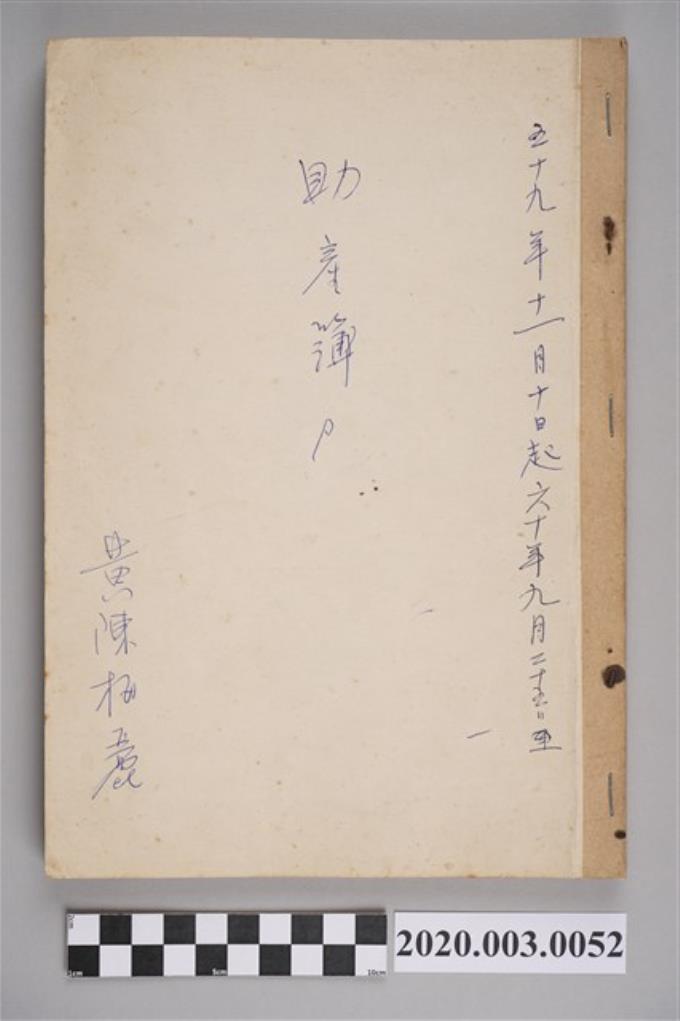 五十九年十一月十日起六十年九月二十五日至
助產簿
黃陳梅麗
2020.003.0052
1cm 5cm 10cm